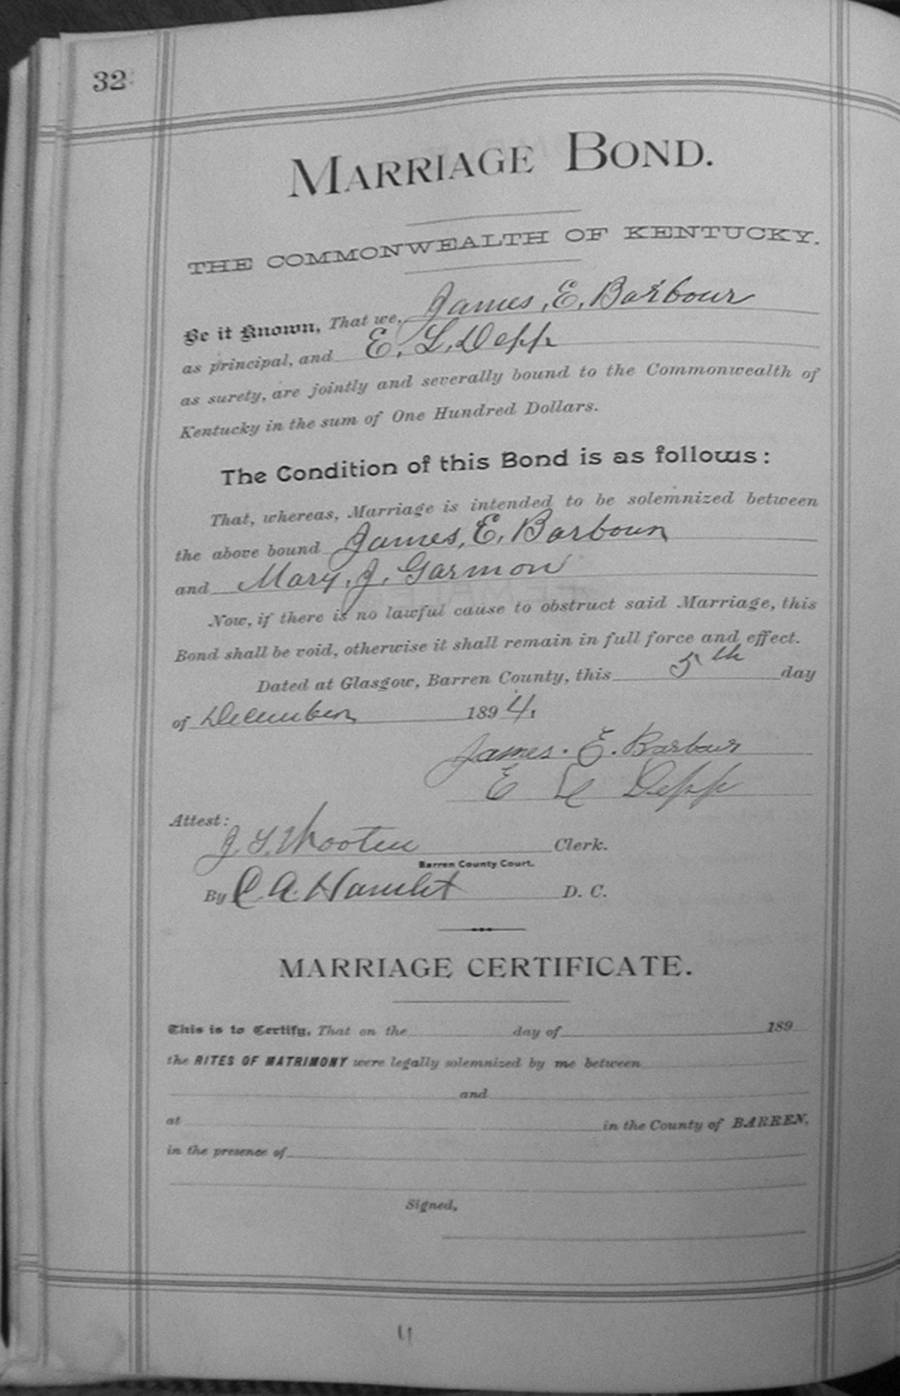 32
MARRIAGE BOND.
THE COMMONWEALTH OF KENTUCKY.
Be it Known, That we, James. E. Barbour
as principal, and E. L. Depp
as surety, are jointly and severally bound to the Commonwealth of
Kentucky in the sum of One Hundred Dollars.
The Condition of this Bond is as follows:
That, whereas, Marriage is intended to be solemnized between
the above bound James. E. Barbour
and Mary. J. Garmon
Now, if there is no lawful cause to obstruct said Marriage, this
Bond shall be void, otherwise it shall remain in full force and effect.
Dated at Glasgow, Barren County, this 5th day
of December 1894.
James. E. Barbour
E L Depp
Attest:
J. T. Wooten Clerk.
Barren County Court.
By C. A. Hamlet D. C.
MARRIAGE CERTIFICATE.
This is to Certify, That on the day of 189
the RITES OF MATRIMONY were legally solemnized by me between
and
at in the County of BARREN,
in the presence of
Signed,